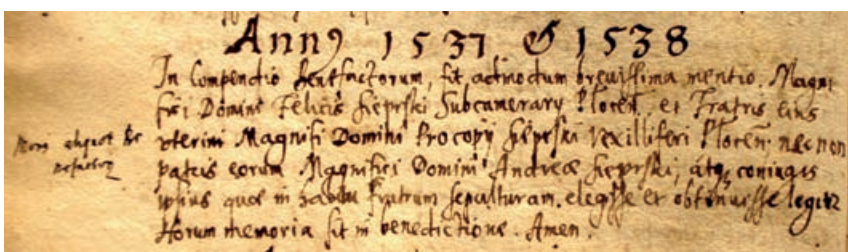 Annꝯ 1537 & 1538
In Compendio Benefactorum, fit admodum brevissima mentio. Magni
fici Domini Felicis Sieprski Subcamerary Plocen. et Fratris eius
vterini Magnifi Domini Procopij Sieprski Vexilliferi Plocen; nec non
patris eorum Magnifici Domini Andreæ Sieprski, atq; coniugis
ipsius quæ in habitu Fratrum sepulturam elegisse et obtinuisse legitr
Horum memoria sit in benedictione. Amen.
aliquot Be
nefactorū